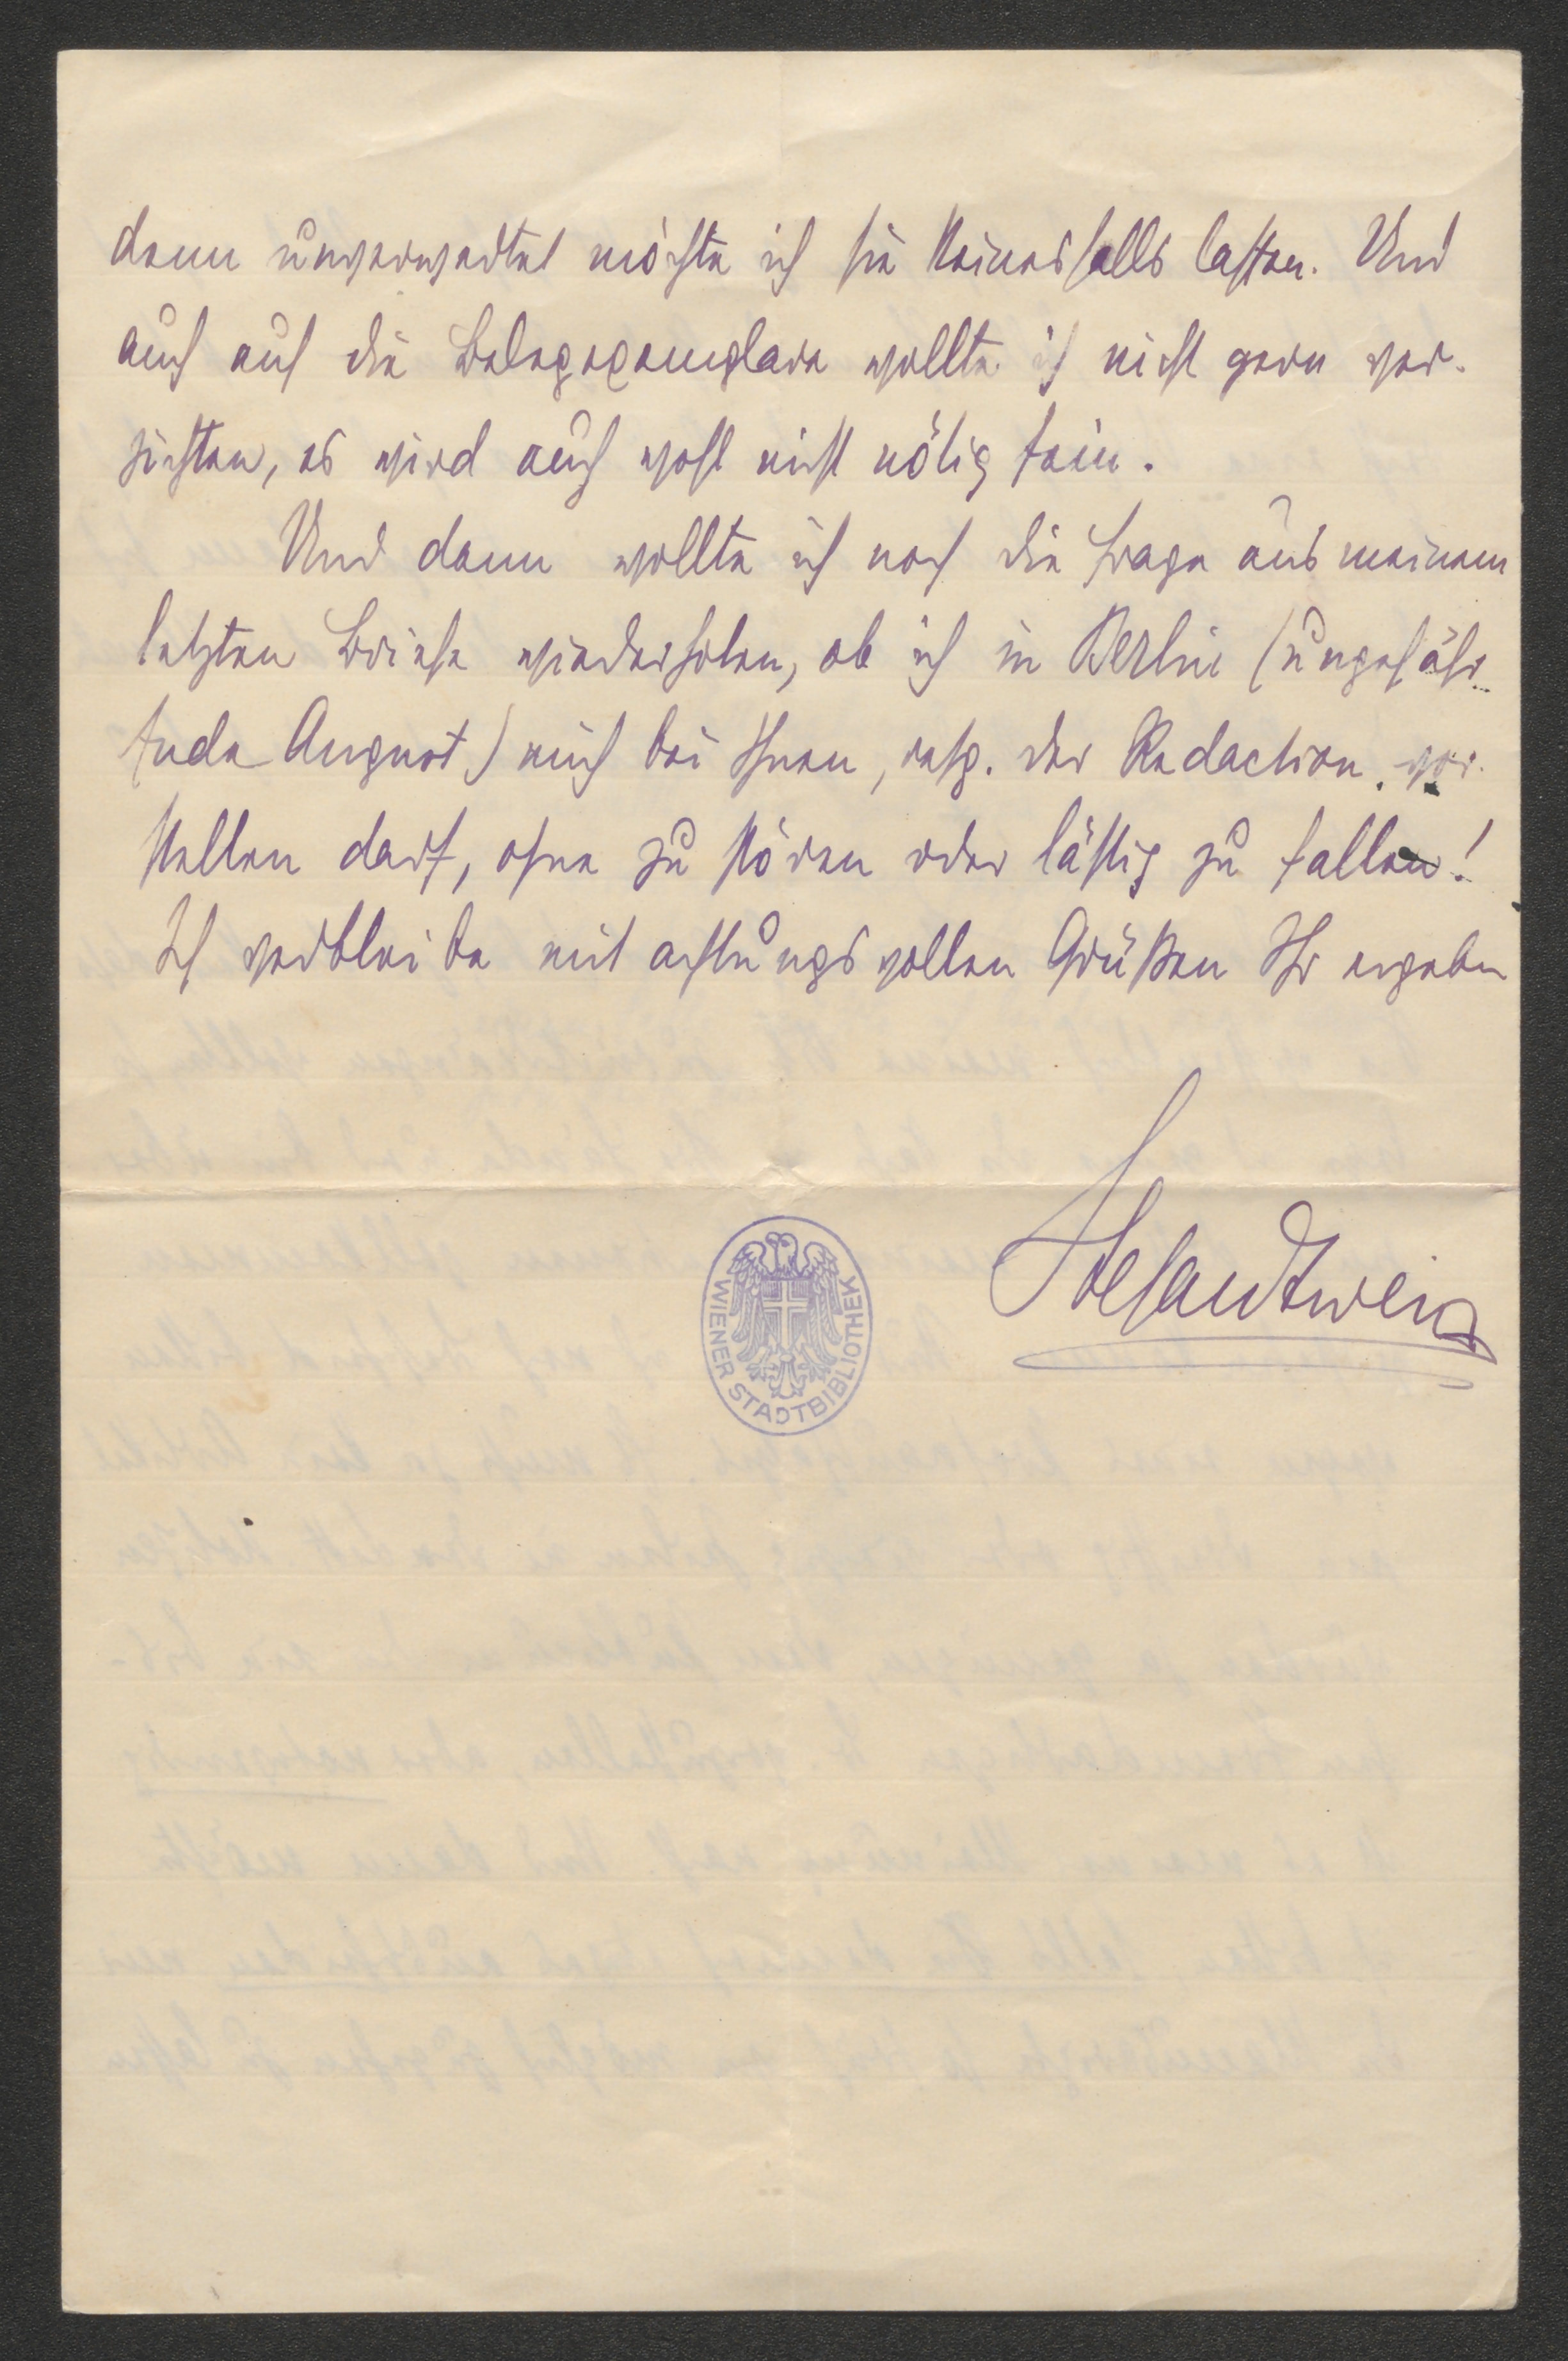 denn unverwertet möchte ich sie keinesfalls lassen. Und
auch auf die Belegexemplare wollte ich nicht gern ver-
zichten, es wird auch wohl nicht nötig sein.
Und dann wollte ich noch die Frage aus meinem
letzten Briefe wiederholen, ob ich in Berlin (ungefähr
Ende August) mich bei Ihnen, resp. der Redaction vor-
stellen darf, ohne zu stören oder lästig zu fallen!
Ich verbleibe mit achtungsvollen Grüßen Ihr ergeben
WIENER STADTBIBLIOTHEK